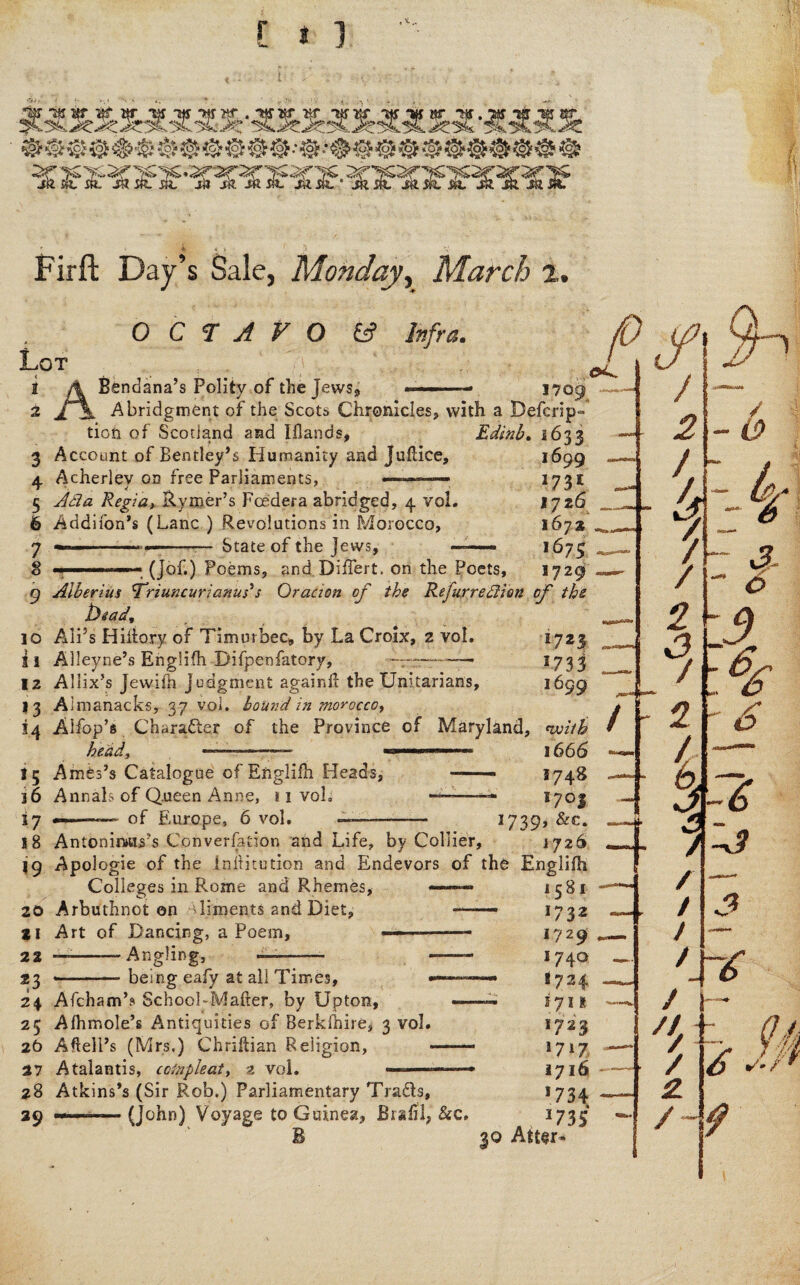 [ 1 ]
Firſt Day's Sale, Monday, March 2.
OCTAVO & Infra.
Lot
1 A Bendana's Polity of the Jews, —— 1709
2 Abridgment of the Scots Chronicles, with a Deſcrip-
tion of Scotland and Iſlands, Edinb. 1633
3 Account of Bentley's Humanity and Juſtice, 1699
4 Acherley on free Parliaments, —— 1731
5 Acta Regia, Rymer's Fœdera abridged, 4 vol. 1726
6 Addiſon's (Lanc.) Revolutions in Morocco, 1672
7 —— State of the Jews, —— 1675
8 —— (Joſ.) Poems, and Diſſert. on the Poets, 1729
9 Alberius Triuncurianus's Oration of the Reſurrection of the
Dead,
10 Ali's Hiſtory of Timurbec, by La Croix, 2 vol. 1723
11 Alleyne's Engliſh Diſpenſatory, —— 1733
12 Allix's Jewiſh Judgment againſt the Unitarians, 1699
13 Almanacks, 37 vol. bound in morocco,
14 Alſop's Character of the Province of Maryland, with
head, —— —— 1666
15 Ames's Catalogue of Engliſh Heads, —— 1748
16 Annals of Queen Anne, 11 vol. —— 1703
17 —— of Europe, 6 vol. —— 1739, &c.
18 Antoninus's Converſation and Life, by Collier, 1726
19 Apologie of the Inſtitution and Endevors of the Engliſh
Colleges in Rome and Rhemes, —— 1581
20 Arbuthnot on Aliments and Diet, —— 1732
21 Art of Dancing, a Poem, —— 1729
22 —— Angling, —— —— 1740
23 —— being eaſy at all Times, —— 1724
24 Aſcham's School-Maſter, by Upton, —— 1711
25 Aſhmole's Antiquities of Berkſhire, 3 vol. 1723
26 Aſtell's (Mrs.) Chriſtian Religion, —— 1717
27 Atalantis, compleat, 2 vol. —— 1716
28 Atkins's (Sir Rob.) Parliamentary Tracts, 1734
29 —— (John) Voyage to Guinea, Braſil, &c. 1735
B 30 Atter-